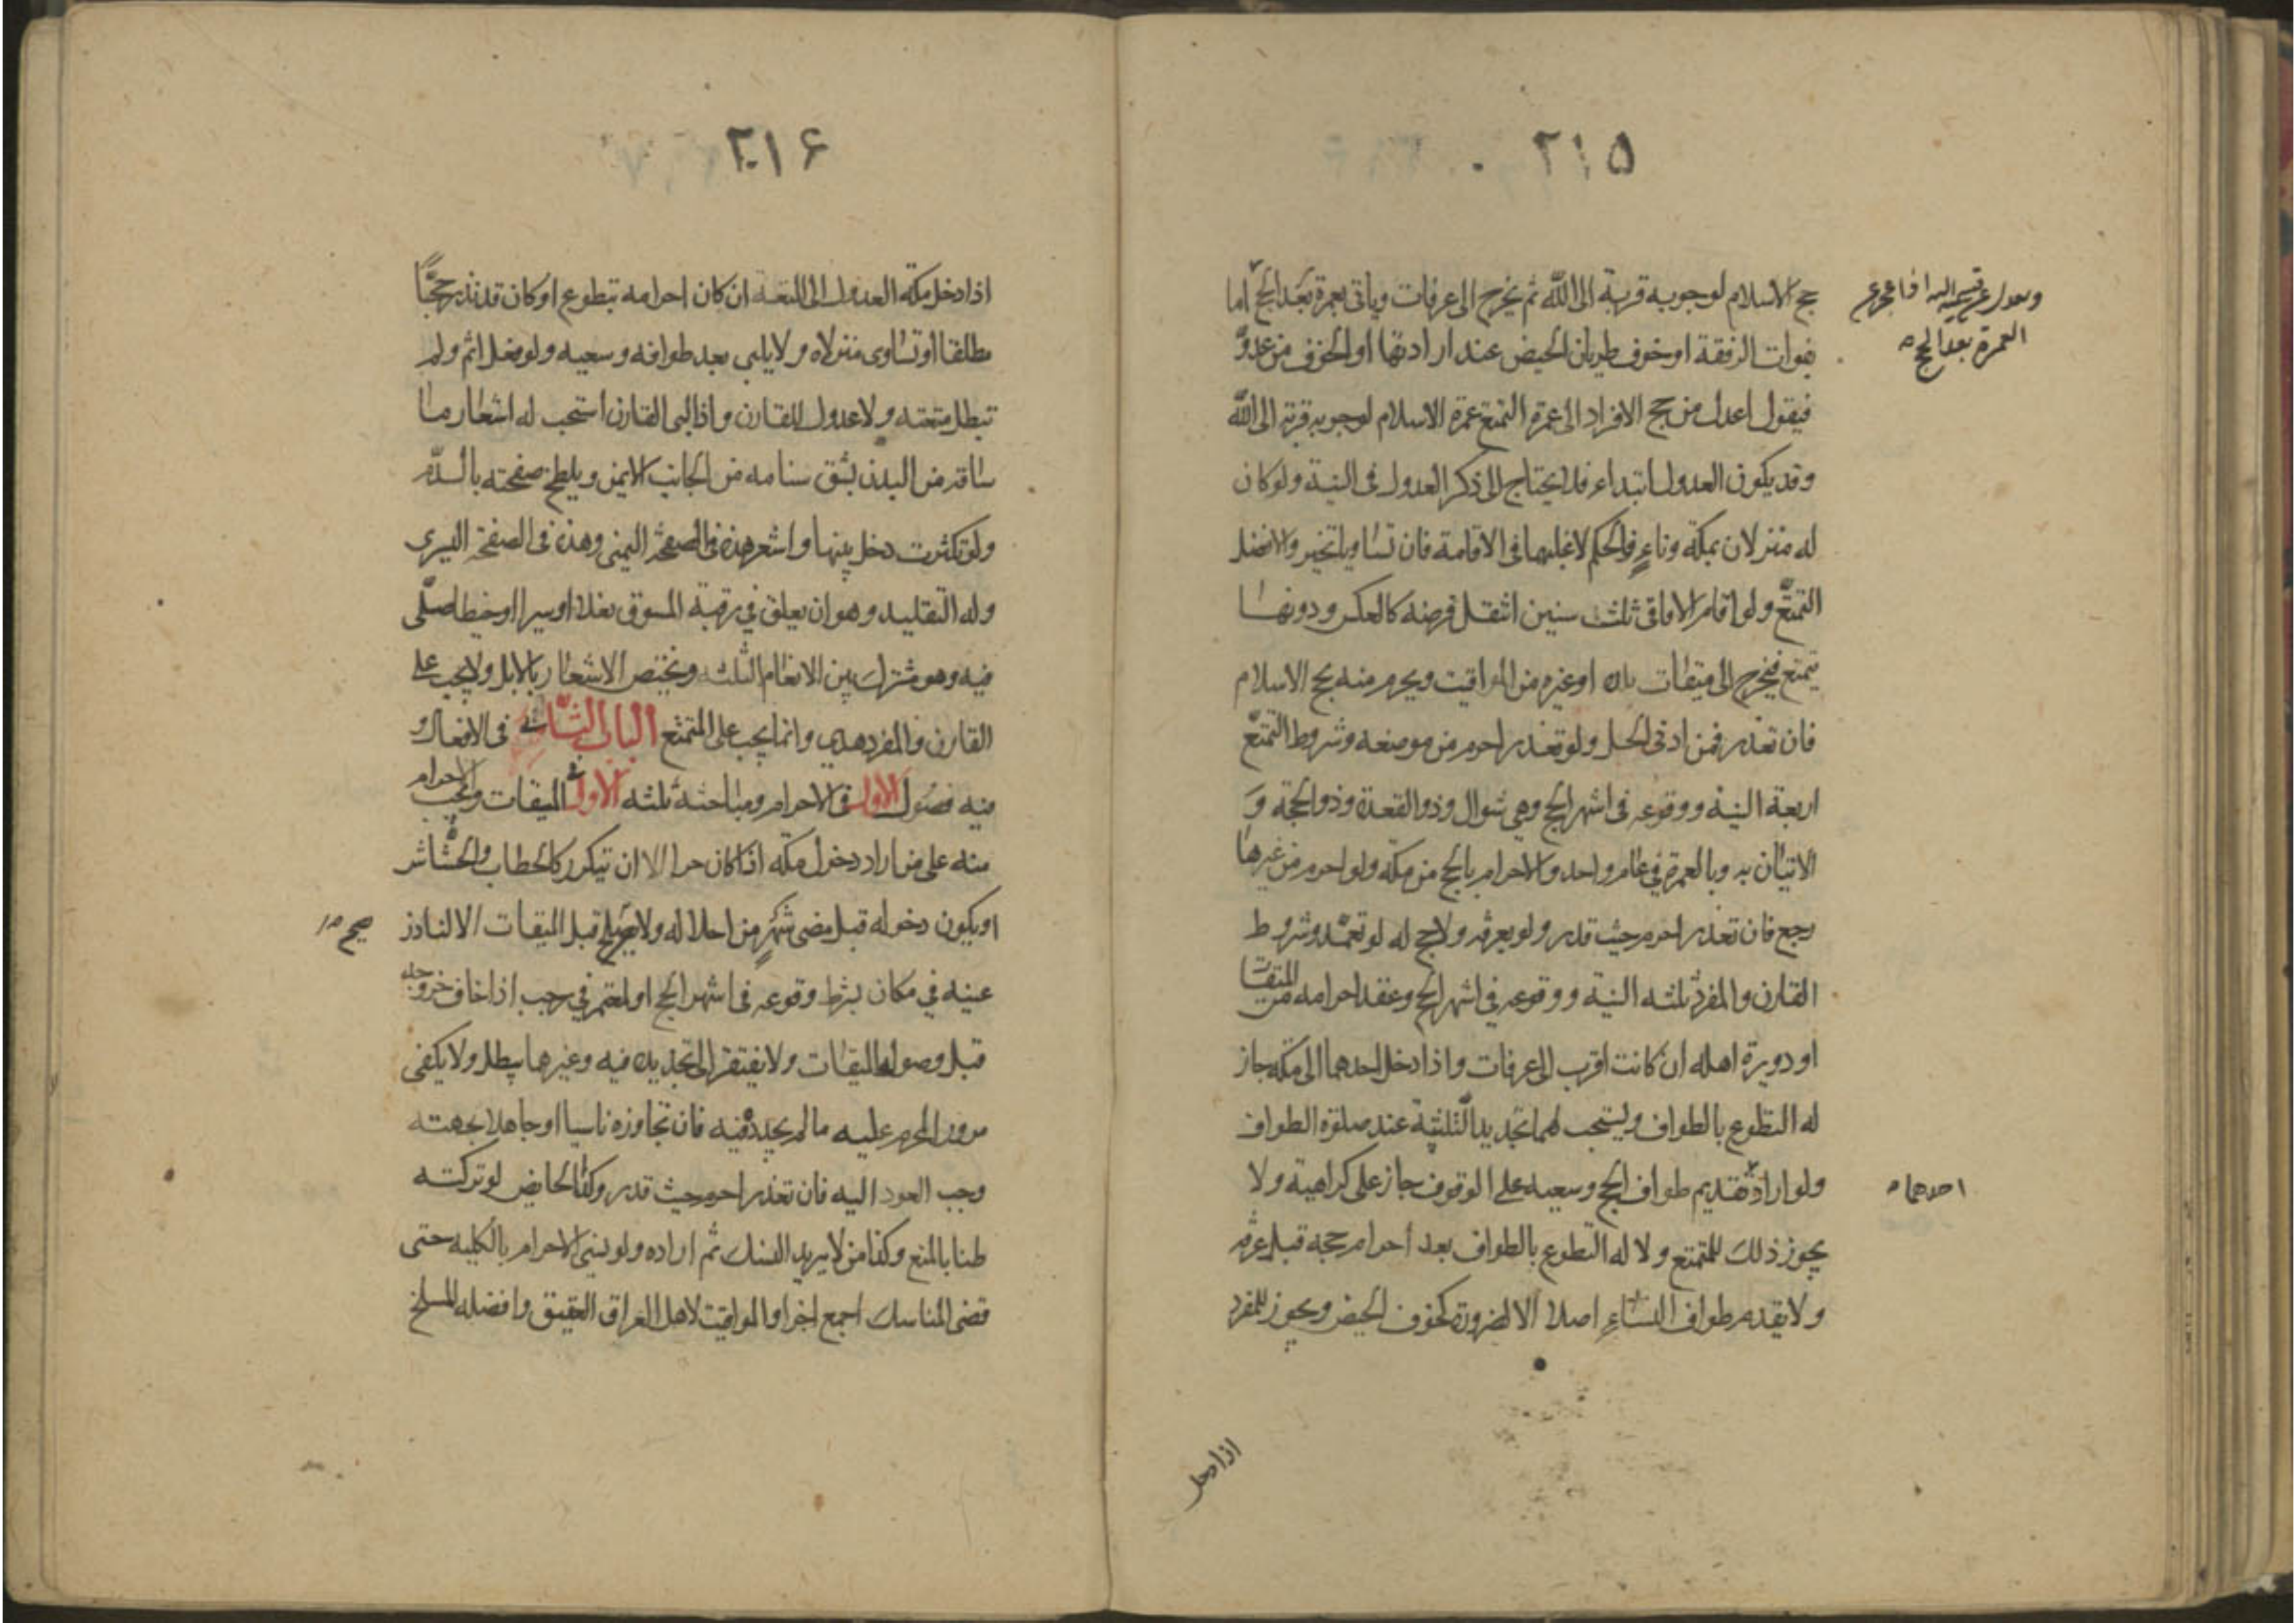 ٢١٥
حج الاسلام لوجوبه قربة الى الله ثم يخرج الى عرفات وياتى بعمرة بعد الحج اما
العمرة بعد الحج
بفوات الرفقة او خوف طريان الحيض عند ارادتها او الخوف من عدوّ
فيقول اعدل من حج الافراد الى عمرة التمتع عمرة الاسلام لوجوبه قربة الى الله
وقد يكون العدول ابتداء فلا يحتاج الى ذكر العدول فى النية ولو كان
له منزلان بمكة وناءٍ فالحكم لاغلبهما فى الاقامة فان تساويا تخير والافضل
التمتع ولو اقام الافاقى ثلث سنين انتقل فرضه كالعكس ودونها
يتمتع فيخرج الى ميقات او غيره من المواقيت ويحرم منه بحج الاسلام
فان تعذر فمن ادنى الحل ولو تعذر احرم من موضعه وشروط التمتع
اربعة النية ووقوعه فى اشهر الحج وهى شوال وذو القعدة وذو الحجة وَ
الاتيان به وبالعمرة في عام واحد والاحرام بالحج من مكة ولو احرم من غيرها
رجع فان تعذر احرم حيث قدر ولو بعرفة ولا حج له لو تعمّد وشروط
القارن والمفرد ثلثه النية ووقوعه في اشهر الحج وعقد احرامه من الميقات
او دويرة اهله ان كانت اقرب الى عرفات واذا دخل احدهما الى مكة جاز
له التطوع بالطواف ويستحب لهما تجديد التلبية عند صلوة الطواف
ولو اراد تقديم طواف الحج وسعيه على الوقوف جاز على كراهية ولا
احدهما
يجوز ذلك للمتمتع ولا له التطوع بالطواف بعد احرام حجه قبل عرفة
ولا يقدم طواف النساءِ اصلا الا لضرورة كخوف الحيض ويجوز للمفرد
اذا دخل
٢١۶
اذا دخل مكة العدول الى المتعة ان كان احرامه بتطوع او كان قد نذر حجًّا
مطلقا او تساوى منزلاه ولا يلبى بعد طوافه وسعيه ولو فعل اثم ولم
تبطل متعته ولا عدول للقارن واذا لبى القارن استحب له اشعار ما
ساقه من البدن بشق سنامه من الجانب الايمن ويلطخ صفحته بالدّم
ولو تكثرت دخل بينها واشعر هذه فى الصفحة اليمنى وهذه فى الصفحة اليسرى
وله التقليد وهو ان يعلق في رقبة المسوق نعلا او سيرا او خيطا صلّى
فيه وهو مشترك بين الانعام الثلثه ويختص الاشعار بالابل ولا يجب على
القارن والمفرد هدى وانما يجب على المتمتع الباب الثانى فى الافعال و
فيه فصول الاول فى الاحرام ومباحثه ثلثه الاول فى الميقات ويجب الاحرام
منه على من اراد دخول مكه اذا كان حرا الا ان تيكرر كالحطاب والحشّاش
او يكون دخوله قبل مضى شهرٍ من احلاله ولا يصح قبل الميقات الا لناذر
صح
عينه في مكان بشرط وقوعه فى اشهر الحج او لمعتمر في رجب اذا خاف خروجه
قبل وصوله الميقات ولا يفتقر الى تجديده فيه وغيرهما يبطل ولا يكفى
مرور المحرم عليه ما لم يجدده فيه فان تجاوزه ناسيا او جاهلا بجهته
وجب العود اليه فان تعذر احرم حيث قدر وكذا الحايض لو تركته
ظنا بالمنع وكذا من لا يريد النسك ثم اراده ولو نسى الاحرام بالكليه حتى
قضى المناسك اجمع اجزا والمواقيت لاهل العراق العقيق وافضله المسلخ